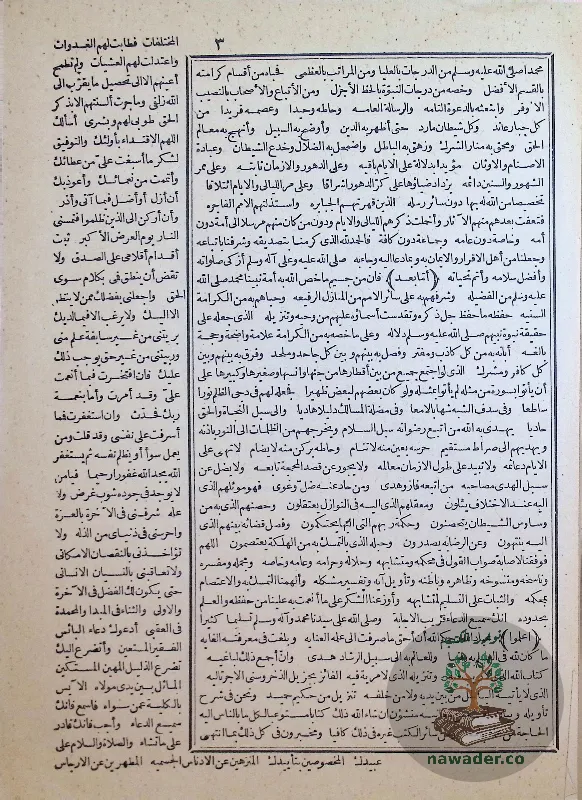 ٣
محمد صلى الله عليه وسلم من الدرجات بالعليا ومن المراتب بالعظمى فحباه من أقسام كرامته
بالقسم الأفضل وخصه من درجات النبوة بالحظ الأجزل ومن الأتباع والأصحاب بالنصيب
الأوفر وابتعثه بالدعوة التامة والرسالة العامه وحاطه وحيدا وعصمه فريدا من
كل جبار عاند وكل شيطان مارد حتى أظهر به الدين وأوضح به السبيل وأنهج به معالم
الحق ومحق به منار الشرك وزهق به الباطل واضمحل به الضلال وخدع الشيطان وعبادة
الاصنام والاوثان مؤيدا بدلالة على الايام باقيه وعلى الدهور والازمان ثابته وعلى ممر
الشهور والسنين دائمه يزداد ضياؤها على كر الدهور اشراقا وعلى مر الليالى والايام ائتلاقا
تخصيصا من الله له بها دون سائر رسله الذين قهرتهم الجبابره واستذلتهم الامم الفاجره
فتعفت بعدهم منهم الآثار وأخملت ذكرهم الليالى والايام ودون من كان منهم مرسلا الى أمة دون
أمه وخاصة دون عامه وجماعة دون كافة فالحمد لله الذى كرمنا بتصديقه وشرفنا باتباعه
وجعلنا من أهل الاقرار والايمان به وبما دعا اليه وجاء به صلى الله عليه وعلى آله وسلم أزكى صلواته
وأفضل سلامه وأتم تحياته (أما بعد) فان من جسيم ما خص الله به أمة نبينا محمد صلى الله
عليه وسلم من الفضيله وشرفهم به على سائر الامم من المنازل الرفيعه وحباهم به من الكرامة
السنيه حفظه ما حفظ جل ذكره وتقدست أسماؤه عليهم من وحيه وتنزيله الذى جعله على
حقيقة نبوة نبيهم صلى الله عليه وسلم دلاله وعلى ما خصه به من الكرامة علامة واضحة وحجة
بالغه أبانه به من كل كاذب ومفتر وفصل به بينهم وبين كل جاحد وملحد وفرق به بينهم وبين
كل كافر ومشرك الذى لو اجتمع جميع من بين أقطارها من جنها وانسها وصغيرها وكبيرها على
أن يأتوا بسورة من مثله لم يأتوا بمثله ولو كان بعضهم لبعض ظهيرا فجعله لهم فى دجى الظلم نورا
ساطعا وفى سدف الشبه شهابا لامعا وفى مضلة المسالك دليلا هاديا والى سبل النجاة والحق
حاديا يهدى به الله من اتبع رضوانه سبل السلام ويخرجهم من الظلمات الى النور باذنه
ويهديهم الى صراط مستقيم حرسه بعين منه لا تنام وحاطه بركن منه لا يضام لا تهى على
الايام دعائمه ولا تبيد على طول الازمان معالمه ولا يجور عن قصد المحجة تابعه ولا يضل عن
سبل الهدى مصاحبه من اتبعه فاز وهدى ومن حاد عنه ضل وغوى فهو موئلهم الذى
اليه عند الاختلاف يئلون ومعقلهم الذى اليه فى النوازل يعتقلون وحصنهم الذى به من
وساوس الشيطان يتحصنون وحكمة ربهم التى اليها يحتكمون وفصل قضائه بينهم الذى
اليه ينتهون وعن الرضا به يصدرون وحبله الذى بالتمسك به من الهلكة يعتصمون اللهم
فوفقنا لاصابة صواب القول فى محكمه ومتشابهه وحلاله وحرامه وعامه وخاصه ومجمله ومفسره
وناسخه ومنسوخه وظاهره وباطنه وتأويل آيه وتفسير مشكله وألهمنا التمسك به والاعتصام
بمحكمه والثبات على التسليم لمتشابهه وأوزعنا الشكر على ما أنعمت به علينا من حفظه والعلم
بحدوده انك سميع الدعاء قريب الاجابة وصلى على سيدنا محمد وآله وسلم تسليما كثيرا
(اعلموا) عباد الله رحمكم الله أن أحق ما صرفت الى علمه العنايه وبلغت فى معرفته الغايه
ما كان لله فى العلم به رضا وللعالم به الى سبيل الرشاد هدى وان أجمع ذلك لباغيه
كتاب الله الذى لا ريب فيه وتنزيله الذى لا مرية فيه الفائز بجزيل الذخر وسنى الاجر تاليه
الذى لا يأتيه الباطل من بين يديه ولا من خلفه تنزيل من حكيم حميد ونحن فى شرح
تأويله منشئون ان شاء الله ذلك كتابا مستوعبا لكل ما بالناس اليه
الحاجة من سائر الكتب غيره فى ذلك كافيا ومخبرون فى كل ذلك بما انتهى
المختلفات فطابت لهم الغدوات
واعتدلت لهم العشيات ولم تطمح
أعينهم الا الى تحصيل ما يقرب الى
الله زلفى وما جرت ألسنتهم الا بذكر
الحق طوبى لهم وبشرى أسألك
اللهم الاقتداء بأولئك والتوفيق
لشكر ما أسبغت على من عطائك
وأتممت من نعمائك وأعوذ بك
أن أزل أو أضل فيما آتى وأذر
وأن أركن الى الذين ظلموا فتمسنى
النار يوم العرض الأكبر ثبت
أقدام أقلامى على الصدق ولا
تقض أن ينطق فى بكلام سوى
الحق واجعلنى بفضلك ممن لا ينتظر
الا اليك ولا يرغب الا فيما لديك
بريتنى من غير سابقة علم منى
وربيتنى من غير حق يوجب ذلك
عليك فان افتخرت فبما أنعمت
على وقد أمرت وأما بنعمة
ربك فحدث وان استغفرت فما
أسرفت على نفسى وقد قلت ومن
يعمل سوأ أو يظلم نفسه ثم يستغفر
الله يجد الله غفورا رحيما فيا من
لا يوجد فى جوده شوب غرض ولا
عله شرفنى فى الآخرة بالعزة
واحرسنى فى دنياى من الذله ولا
تؤاخذنى بالنقصان الامكانى
ولا تعاقبنى بالنسيان الانسانى
حتى يكون لك الفضل فى الآخرة
والاولى والثناء فى المبدا والمحمدة
فى العقبى أدعوك دعاء البائس
الفقير المستعين وأتضرع اليك
تضرع الذليل المهين المستكين
الماثل بين يدى مولاه الآيس
بالكلية عن سواه فاسمع فانك
سميع الدعاء وأجب فانك قادر
على ما تشاء والصلاة والسلام على
عبيدك المخصوصين بتأييدك المنزهين عن الادناس الجسميه المطهرين عن الارجاس
nawader.co